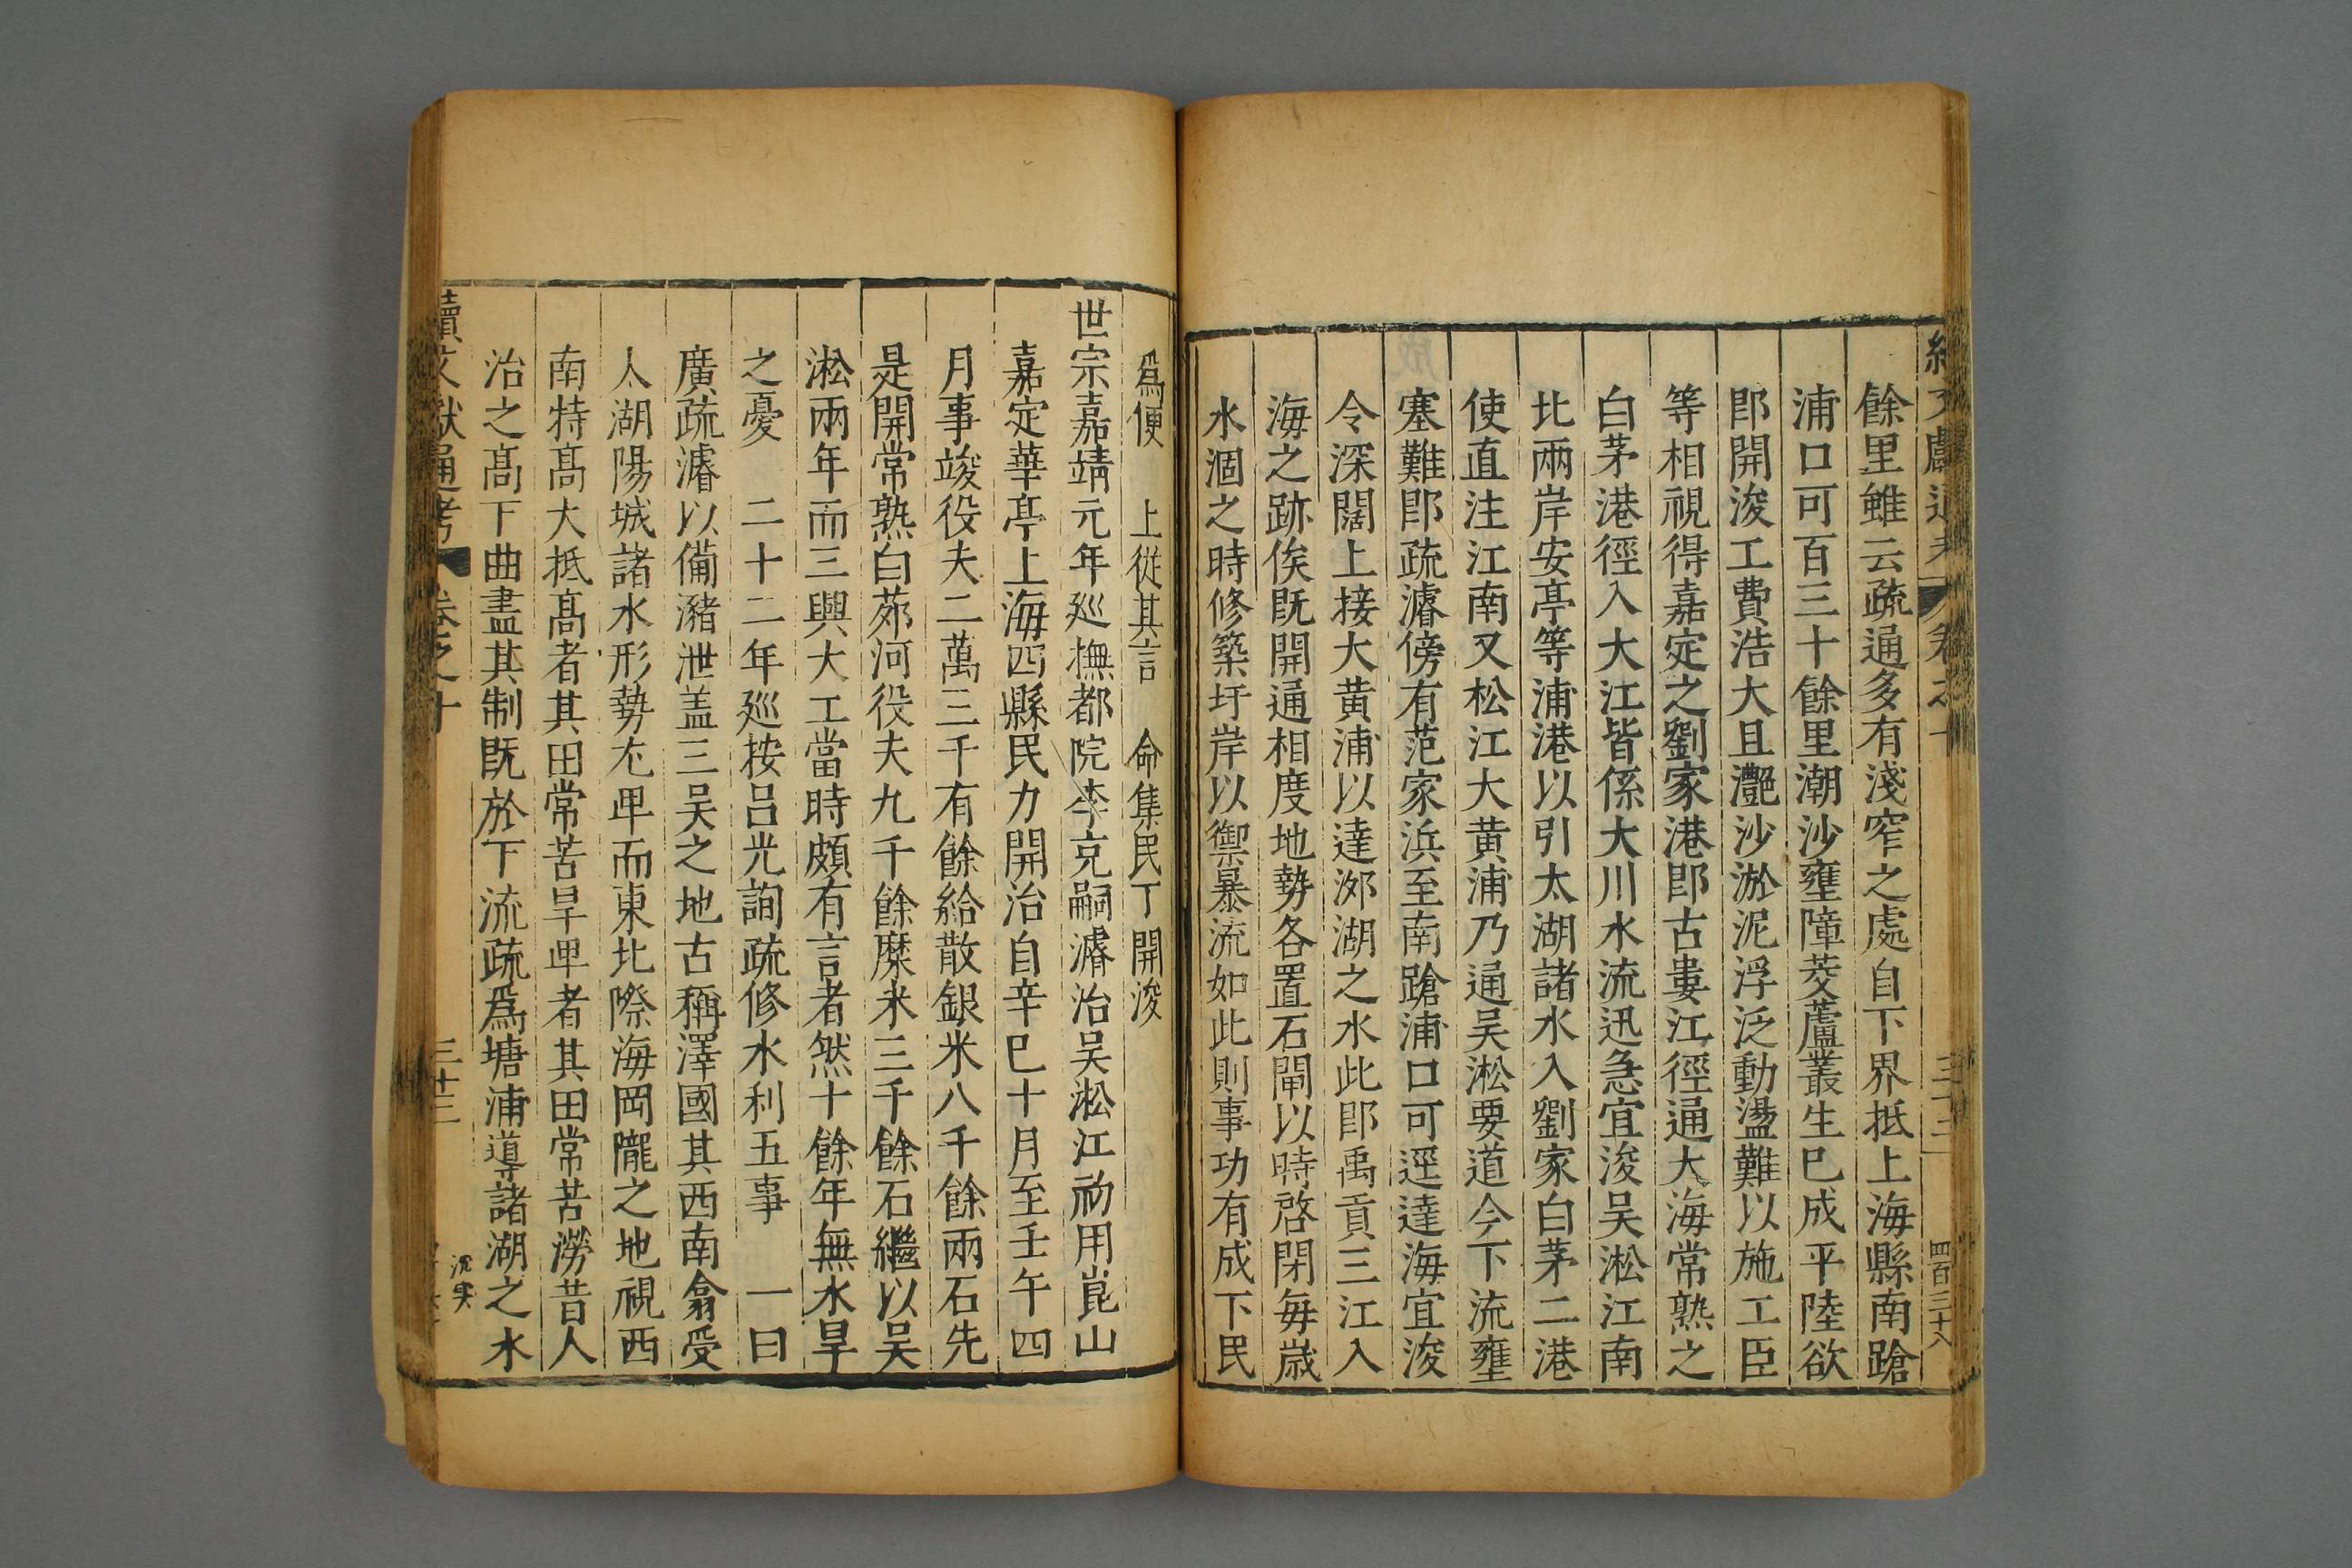 餘里雖云疏通多有淺窄之處自下界抵上海縣南蹌
浦口可百三十餘里潮沙壅障茭蘆叢生已成平陸欲
郎開浚工費浩大且灔沙淤泥浮泛動盪難以施工臣
等相視得嘉定之劉家港郎古婁江徑通大海常熟之
白茅港徑入大江皆係大川水流迅急宜浚吴淞江南
北兩岸安亭等浦港以引太湖諸水入劉家白茅二港
使直注江南又松江大黄浦乃通吴淞要道今下流壅
塞難郎疏濬傍有范家浜至南蹌浦口可逕達海宜浚
令深闊上接大黄浦以達泖湖之水此郎禹貢三江入
海之跡俟既開通相度地勢各置石閘以時啓閉毎歲
水涸之時修築圩岸以禦暴流如此則事功有成下民
爲便 上從其言 命集民丁開浚
世宗嘉靖元年廵撫都院李克嗣濬治吴淞江初用崑山
嘉定華亭上海四縣民力開治自辛巳十月至壬午四
月事竣役夫二萬三千有餘給散銀米八千餘兩石先
是開常熟白茆河役夫九千餘糜米三千餘石繼以吴
淞兩年而三興大工當時頗有言者然十餘年無水旱
之憂 二十二年廵按吕光詢疏修水利五事 一曰
廣疏濬以備瀦泄盖三吴之地古稱澤國其西南翕受
人湖陽城諸水形勢尢𤰞而東北際海岡隴之地視西
南特髙大抵髙者其田常苦旱𤰞者其田常苦澇昔人
治之髙下曲盡其制既於下流疏爲塘浦導諸湖之水
續文獻通考 卷之十 三十三